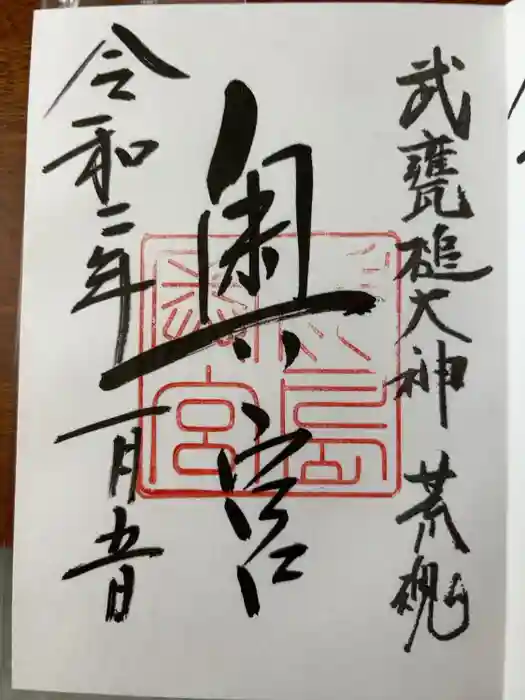 武甕槌大神 荒魂
奥宮
令和二年一月五日